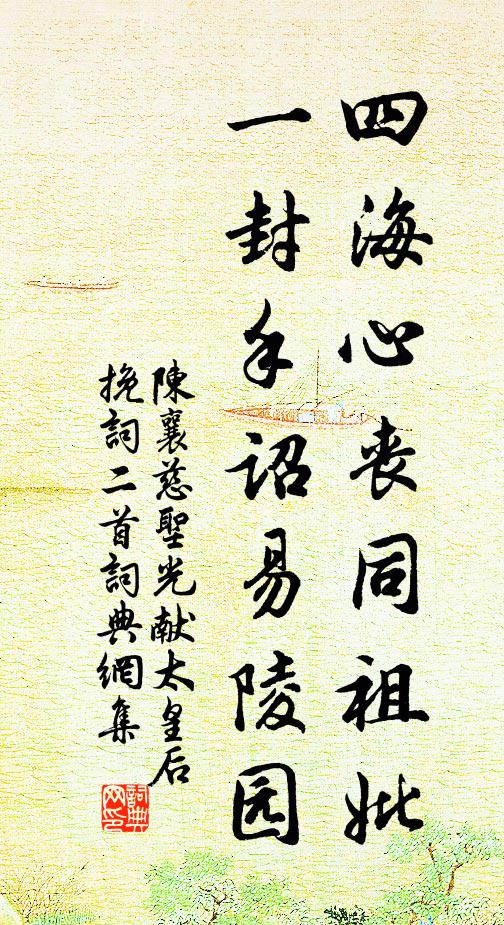 四海心丧同祖妣
一封手诏易陵园
陳襄慈聖光献太皇后
挽詞二首詞典網集
詞典网印